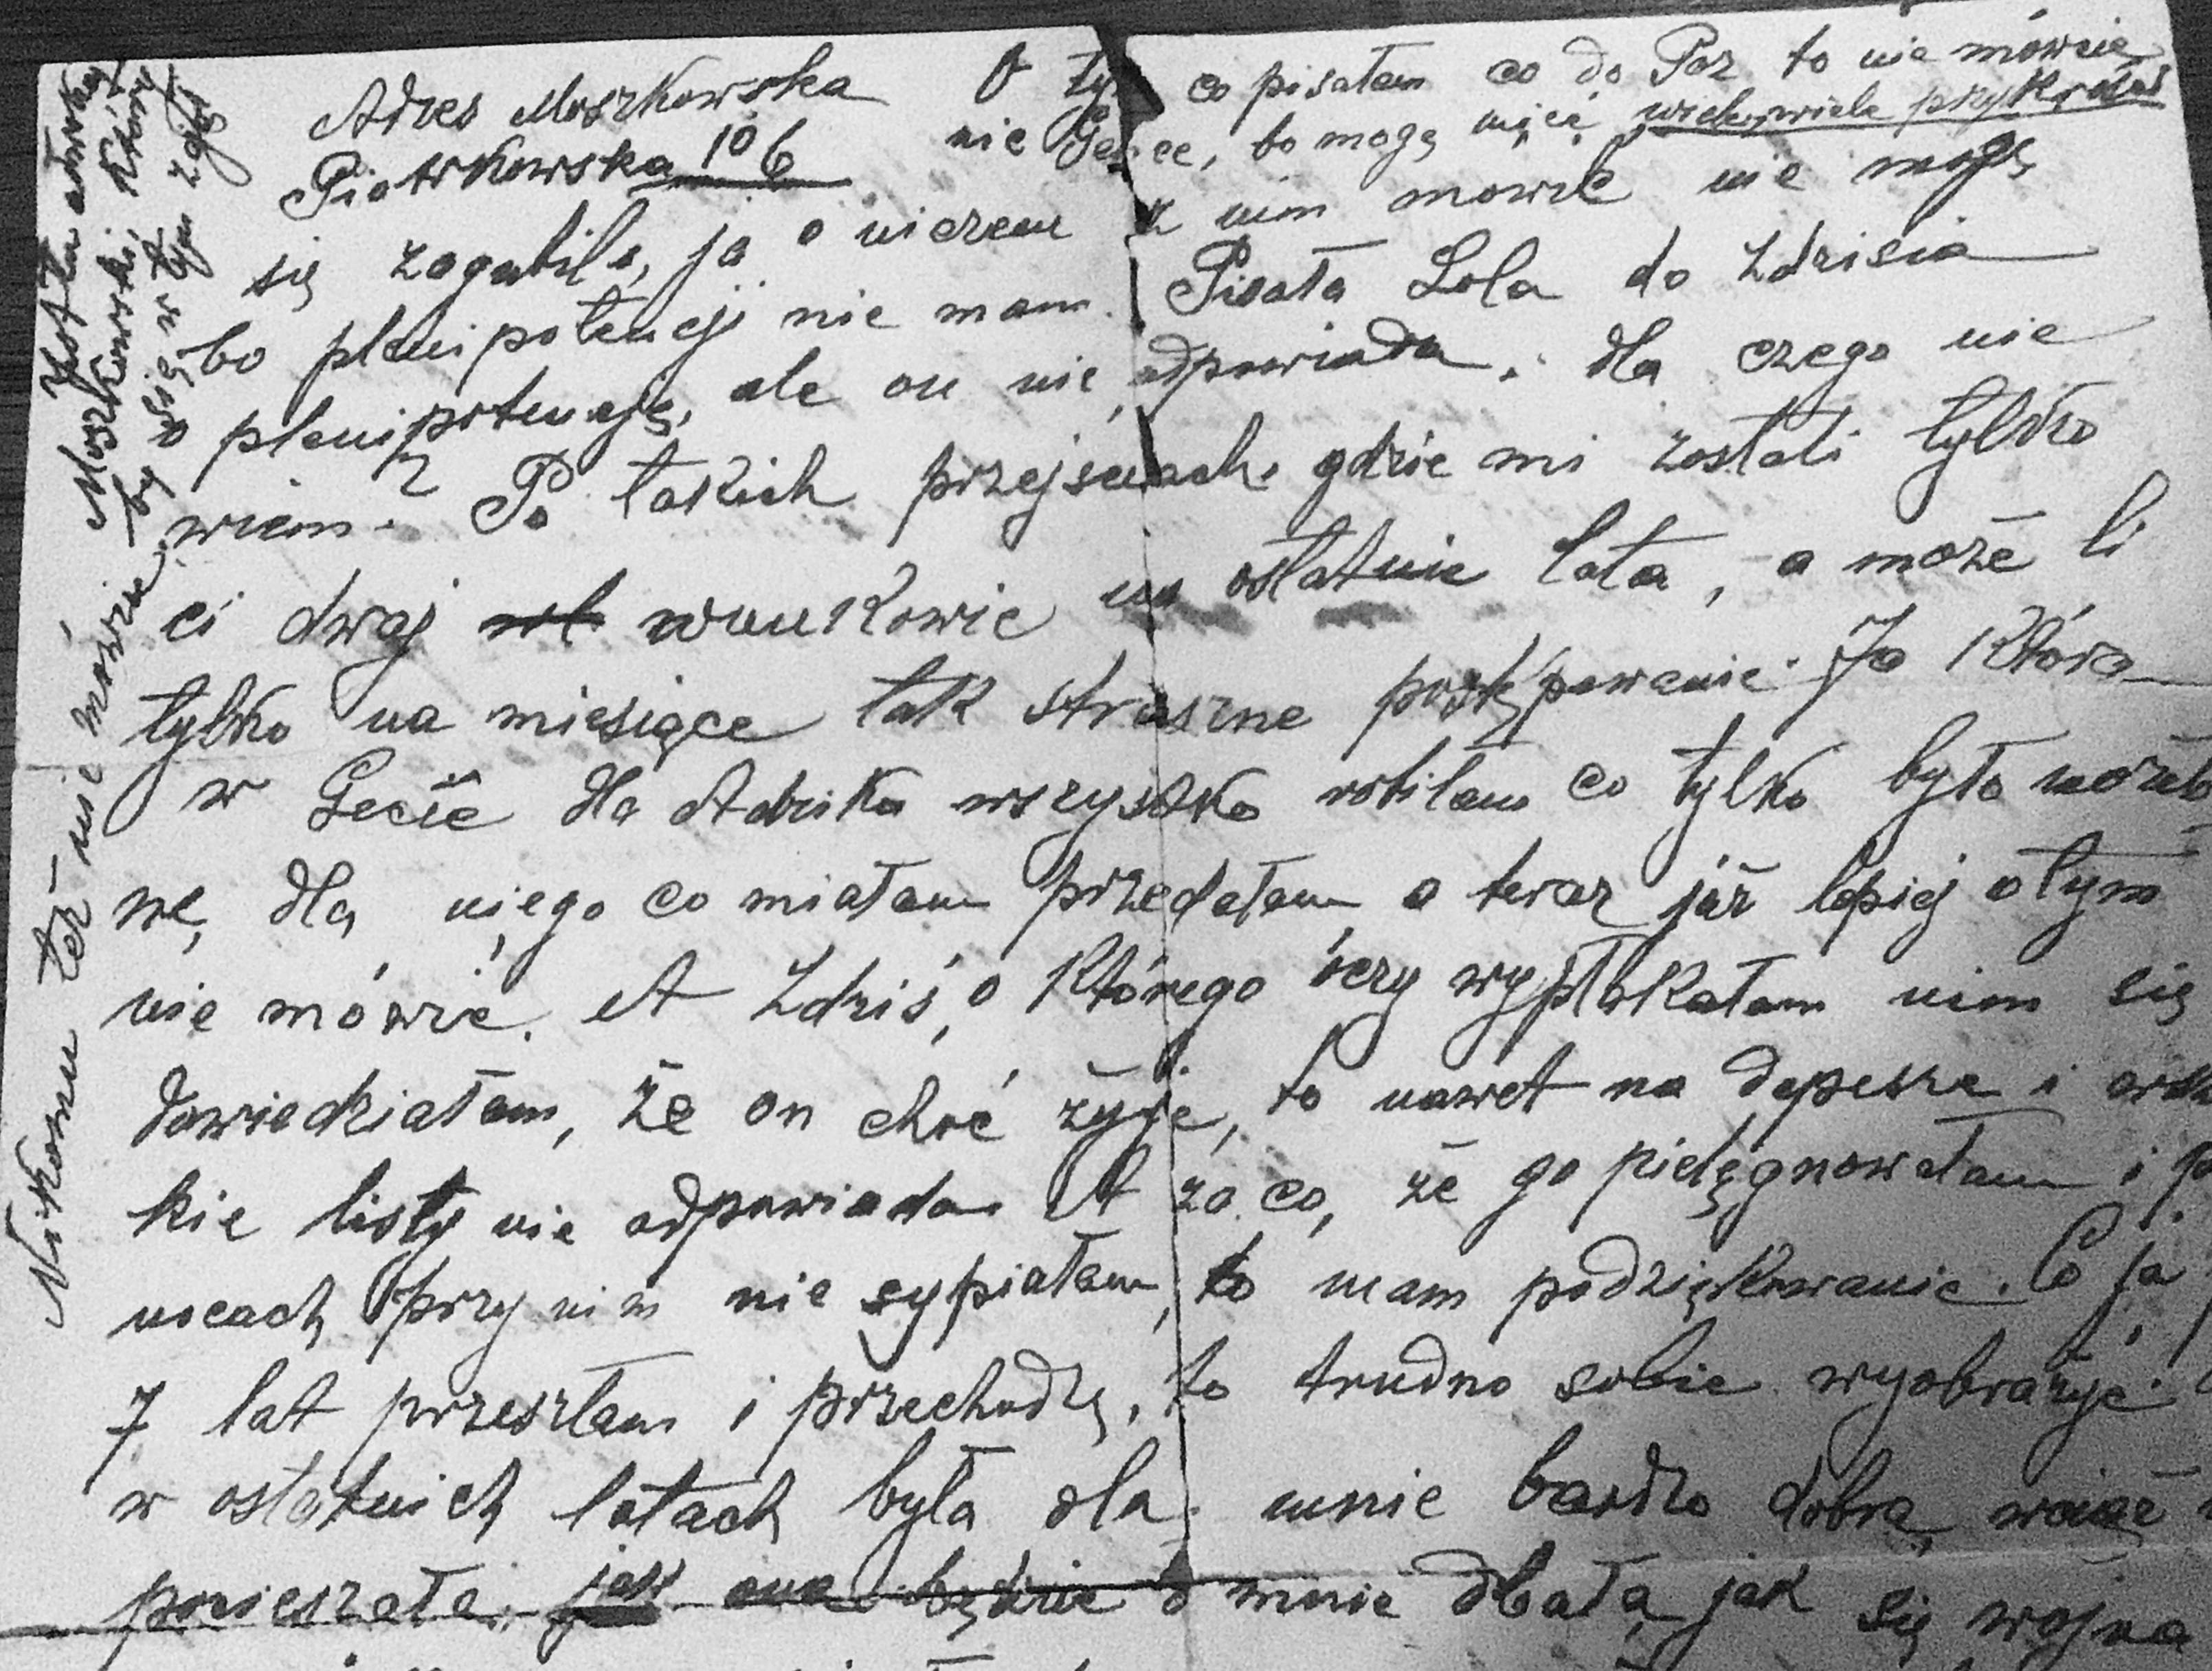 Adres Moszkowska
Piotrkowska 106
O tym co pisałam co do Poz to nie mówcie
nie Gence, bo mogę mieć wiele, wiele przykrości
się zagabiło, ja o niczem z nim mowić nie mogę
bo plenipotencji nie mam. Pisała Lola do Zdzisia
o plenipotencję, ale on nie odpowiada. dla czego nie
wiem? Po takich przejściach gdzie mi zostali tylko
ci dwaj wnukowie na ostatnie lata, a może li
tylko na miesiące tak straszne postępowanie. Ja która
w Gecie dla Adzika wszystko robiłam co tylko było możeb
ne, dla niego co miałam przedałam, a teraz już lepiej o tym
nie mówić. A Zdziś, o którego oczy wypłakałam nim się
dowiedziałam, że on choć żyje, to nawet na depesze i wsz
kie listy nie odpowiada. A za co, że go pielęgnowałam i p
nocach przy nim nie sypiałam, to mam podziękowanie. Co ja
7 lat przeszłam i przechodzę, to trudno sobie wyobrazić.
w ostatnich latach była dla mnie bardzo dobra, wciąż
pocieszała, jak ona będzie o mnie dbała jak się wojna
Nikomu też nie mówcie,
Moszkowski,
by się w tym